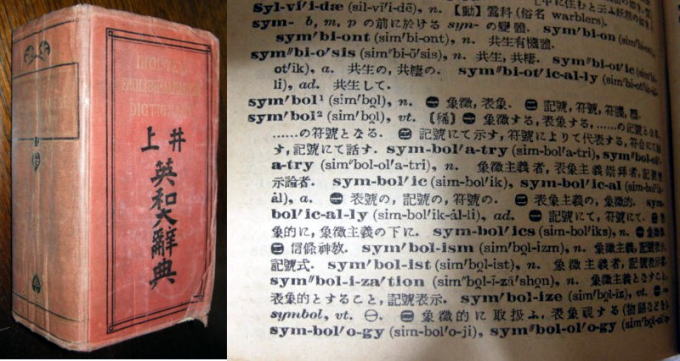 INOUYE'S
DICTIONARY
井上
英和大辭典
Syl-vi'i-dæ (sil-vī'i-dē), n. 【動】 鶯科 (俗名 warblers).
sym- b, m, p の前に於ける syn- の變體.
sym'bi-ont (sim'bi-ont), n. 共生有機器. sym'bi-on (sim'bi-
sym"bi-o'sis (sim"bi-ō'sis), n. 共生, 共棲. sym"bi-ot'ic (sim"bi-
ot'ik), a. 共生の, 共棲の. sym"bi-ot'ic-al-ly (sim"bi-ot'i-
li), ad. 共生して.
sym'bol¹ (sim'bo̤l), n. ㊀ 象徵, 表象. ㊁ 記號, 符號,
sym'bol² (sim'bo̤l), vt. 〔稀〕 ㊀ 象徵する, 表象する, ……の記號となる,
……の符號となる. ㊁ 記號にて示す, 符號によりて代表する,
す, 記號にて話す. sym-bol'a-try (sim-bol'a-tri), sym"bol-
a-try (sim"bol-ol'a-tri), n. 象徵主義者, 表象主義崇拜者,
示論者. sym-bol'ic (sim-bol'ik), sym-bol'ic-al (sim-bol'i-
âl), a. ㊀ 表號の, 記號の, 符號の. ㊁ 表象の, 象徵的. sym-
bol'ic-al-ly (sim-bol'ik-âl-li), ad. ㊀ 記號にて, 符號にて.
象的に, 象徵主義の下に. sym-bol'ics (sim-bol'iks), n.
㊁ 信條神敎. sym'bol-ism (sim'bo̤l-izm), n. 象徵主義,
記號式. sym'bol-ist (sim'bo̤l-ist), n. 象徵主義者,
sym"bol-i-za'tion (sim"bo̤l-i-zā'sho̤n), n. 象徵となすこと,
表象的とすること, 記號表示. sym'bol-ize (sim'bo̤l-īz), vt.
symbol, vt. ㊀. ㊁ 象徵的に取扱ふ, 表象視する
sym-bol'o-gy (sim-bol'o-ji), sym"bol-ol'o-gy